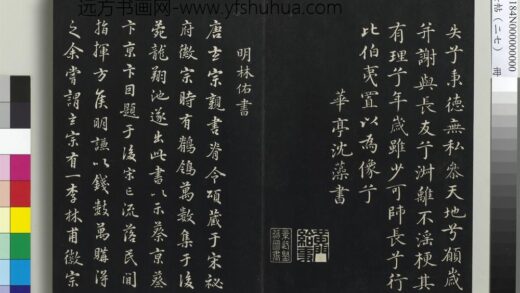 远方书画网-www.yfshuhua.com
184N000000000
帖（二七） 冊
失兮秉德無私參天地兮願歲
并謝與長友兮淑離不淫梗其
有理兮年歲雖少可師長兮行
比伯夷置以為像兮
華亭沈藻書
明林佑書
唐玄宗親書脊令頌藏于宋秘
府徽宗時有鶺鴒萬數集于後
苑龍翔池遂出此書以示蔡京蔡
卞京卞因題于後宋亡流落民間
指揮方侯明謙以錢數萬購得
之余嘗謂玄宗有一李林甫徽宗